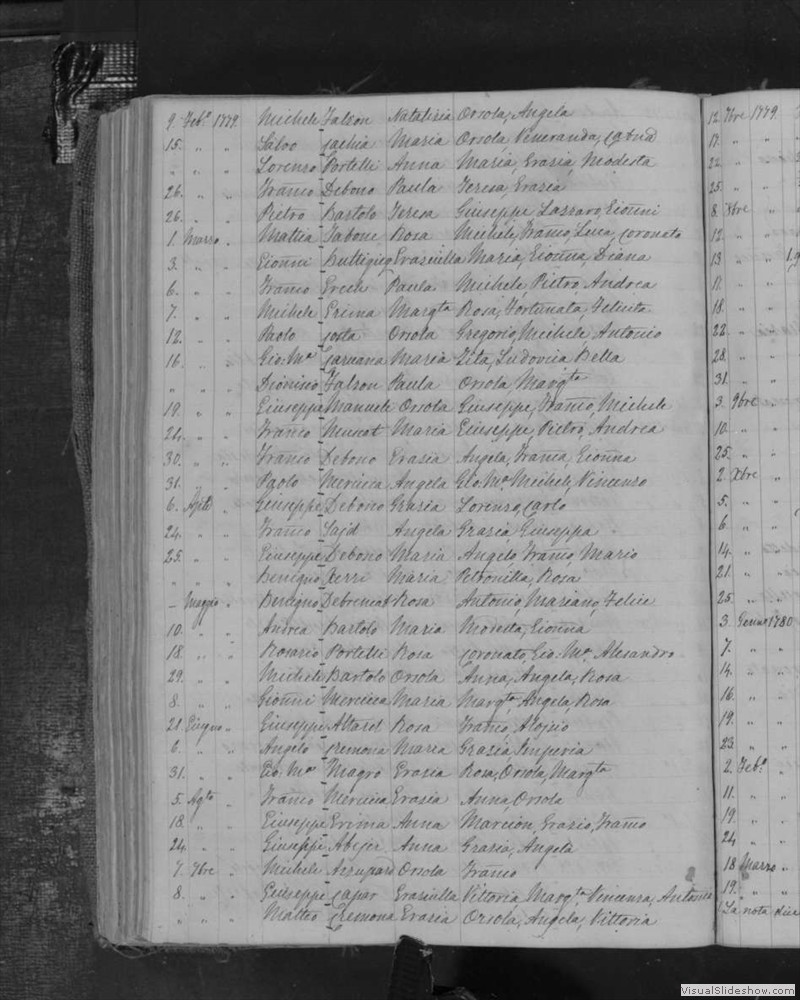 9. Feb.º 1779. Michele Falson Natalizia Orsola, Angela
15. " " Salvo Maria Orsola Veneranda,
" " " Lorenzo Portelli Anna Maria, Grazia, Modesta
26. " " Franco Debono Paula Teresa, Grazia
26. " " Pietro Bartolo Teresa Giuseppe, Lazzaro, Gionni
1. Marzo " Mattia Tabone Rosa Michele, Franco, Luca, Coronato
3. " " Gionni Buttigieg Graziulla Maria, Gionna, Diana
6. " " Franco Grech Paula Michele, Pietro, Andrea
7. " " Michele Grima Margta Rosa, Fortunata, Felicita
12. " " Paolo Costa Orsola Gregorio, Michele, Antonio
16. " " Gio: Mª Caruana Maria Zita, Ludovica, Bella
" " " Dionisio Falson Paula Orsola, Margta
19. " " Giuseppe Manuele Orsola Giuseppe, Franco, Michele
24. " " Franco Muscat Maria Giuseppe, Pietro, Andrea
30. " " Franco Debono Grazia Angela, Franca, Gionna
31. " " Paolo Mercieca Angela Gio. Mª Michele, Vincenzo
6. " Giuseppe Debono Grazia Lorenzo, Carlo
24. " " Franco Sajd Angela Grazia, Giuseppa
25. " " Giuseppe Debono Maria Angelo, Franco, Mario
" " " Benigno Xerri Maria Petronilla, Rosa
– Maggio " Benigno Rosa Antonio, Mariano, Felice
10. " " Andrea Bartolo Maria Modesta, Gionna
18. " " Rosario Portelli Rosa Coronato, Gio: Mª, Alesandro
29. " " Michele Bartolo Orsola Anna, Angela, Rosa
8. " " Gionni Mercieca Maria Margta, Angela, Rosa
21 Giugno " Giuseppe Attard Rosa Franco, Alojsio
6. " " Angelo Cremona Maria Grazia, Imperia
31. " " Gio: Mª Magro Grazia Rosa, Orsola, Margta
5. Agto " Franco Mercieca Grazia Anna, Orsola
18. " " Giuseppe Grima Anna Grazio, Franco
24. " " Giuseppe Abejer Anna Grazia, Angela
7. 7bre " Michele Azzupard Orsola Franco
8. " " Giuseppe Capar Graziulla Vittoria, Margta, Vincenza, Antonio
" " " Matteo Cremona Grazia Orsola, Angela, Vittoria
12. 7bre 1779.
17. " "
22. " "
25. " "
8. 8bre "
12. " "
13 " "
17. " "
18. " "
22. " "
28. " "
31. " "
3. 9bre "
10. " "
25. " "
2. Xbre "
5. " "
6 " "
14. " "
21. " "
25. " "
3. Genno 1780
7. " "
14. " "
16. " "
19. " "
23. " "
2. Feb.º "
11. " "
19. " "
24 " "
18 Marzo "
19. " "
La nota dice
VisualSlideshow.com